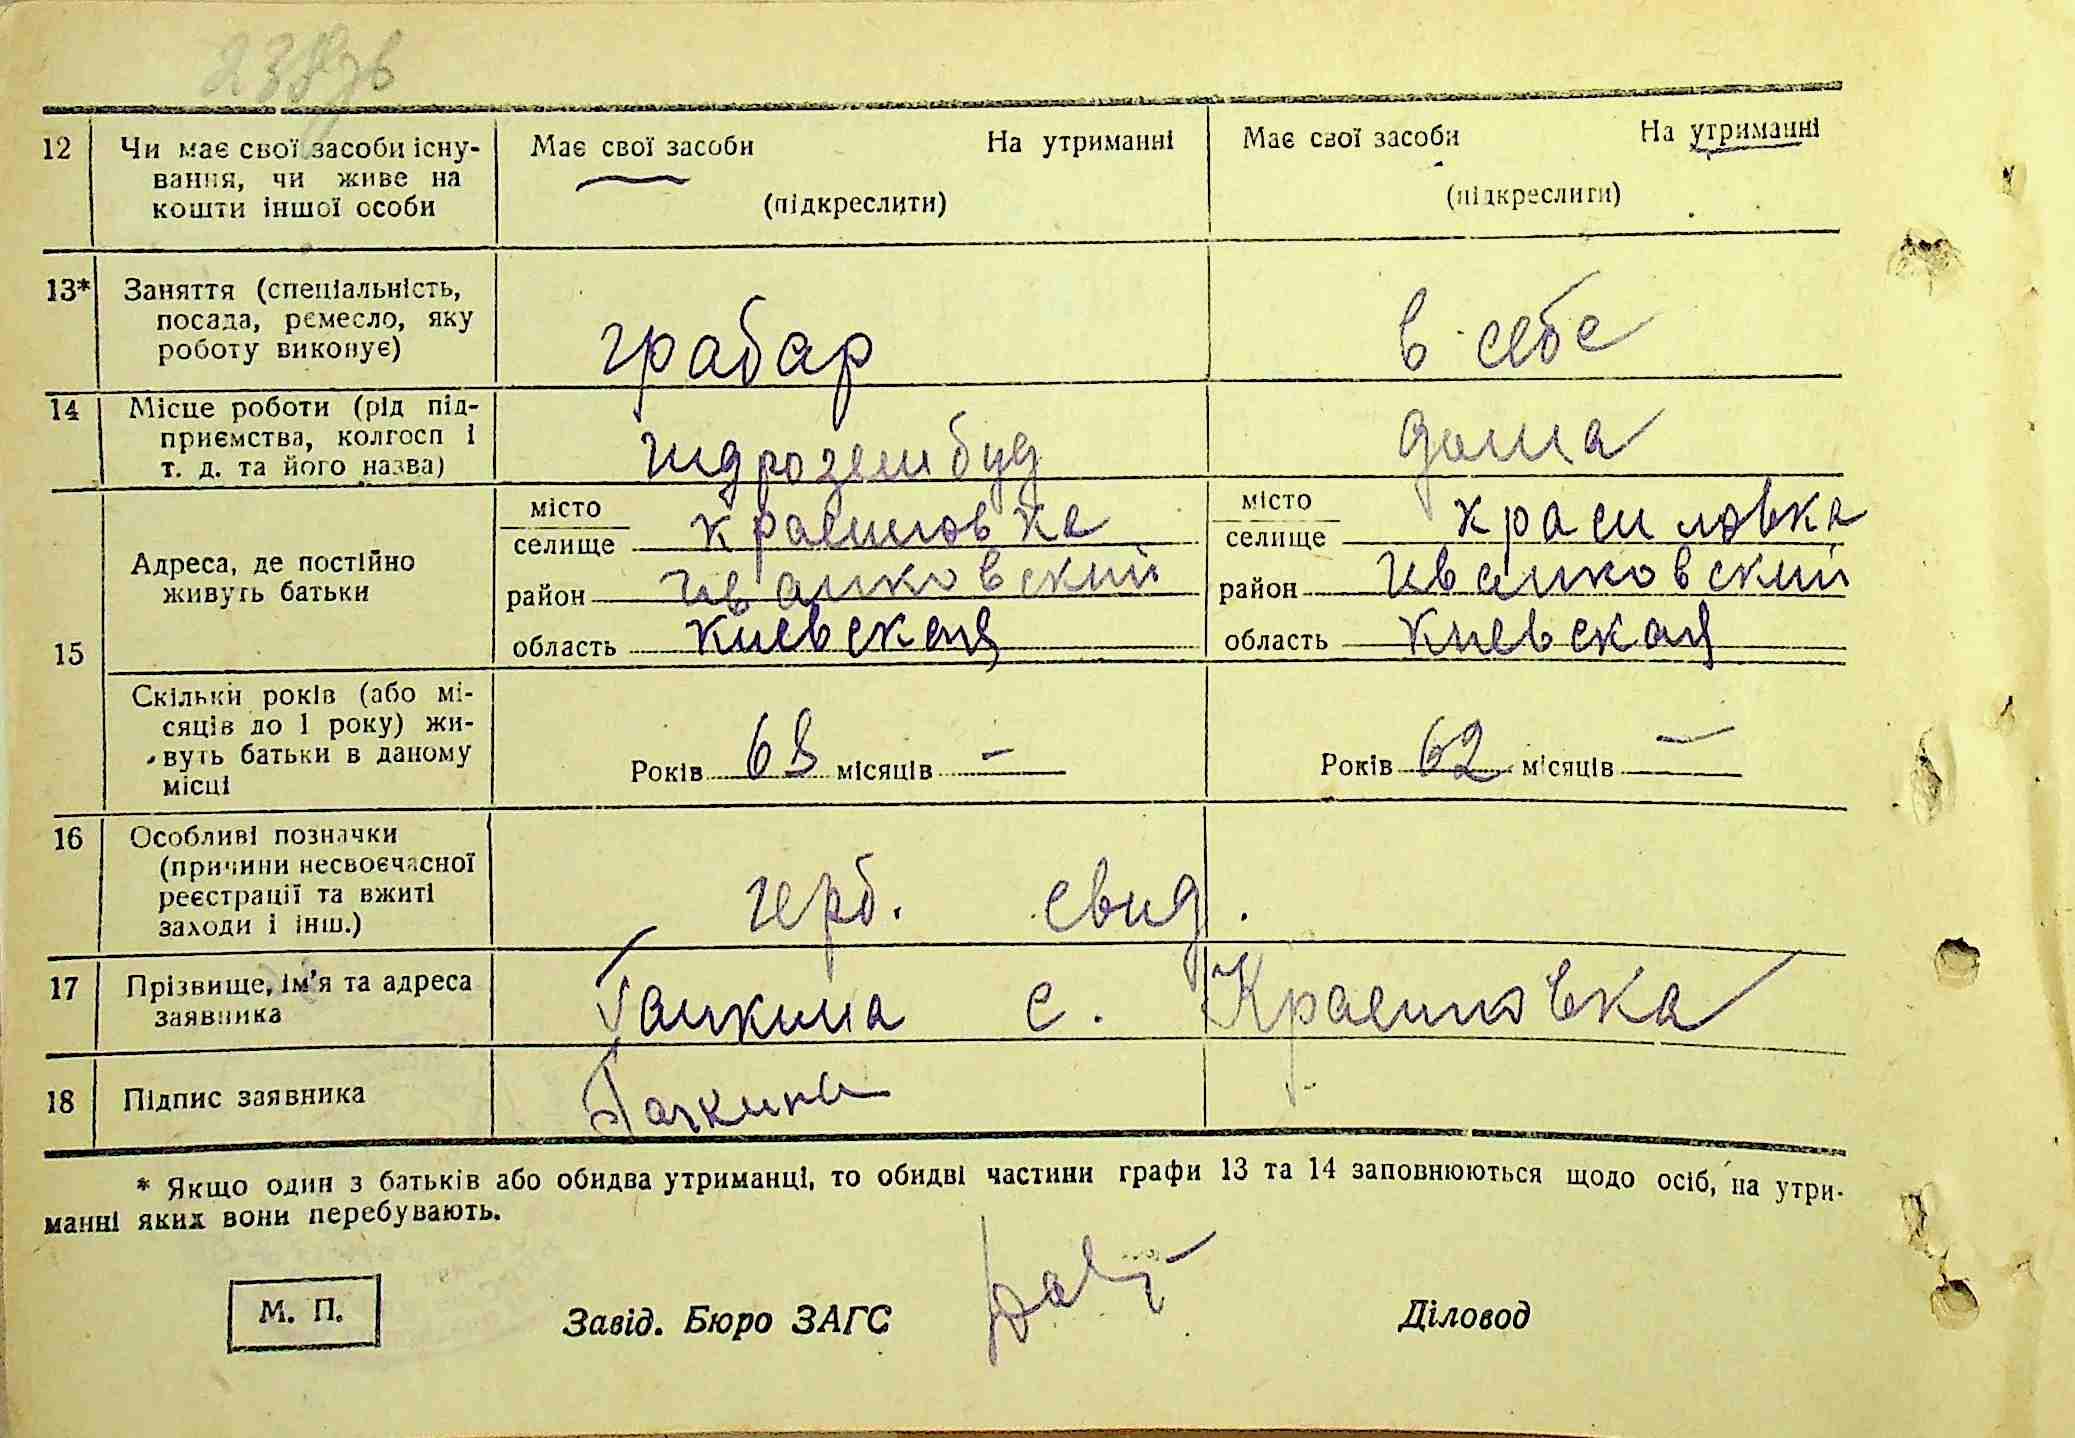 12 Чи має свої засоби існу-
вання, чи живе на
кошти іншої особи
Має свої засоби На утриманні
(підкреслити)
Має свої засоби На утриманні
(підкреслити)
13* Заняття (спеціальність,
посада, ремесло, яку
роботу виконує)
грабар
в себе
14 Місце роботи (рід під-
приємства, колгосп і
т. д. та його назва)
гидрозембуд
дома
15
Адреса, де постійно
живуть батьки
місто
селище Красиловка
район Иванковский
область Киевская
місто
селище Красиловка
район Иванковский
область Киевская
Скільки років (або мі-
сяців до 1 року) жи-
вуть батьки в даному
місці
Років 63 місяців —
Років 62 місяців —
16 Особливі позначки
(причини несвоєчасної
реєстрації та вжиті
заходи і інш.)
герб. свид.
17 Прізвище, ім'я та адреса
заявника
с. Красиловка
18 Підпис заявника
* Якщо один з батьків або обидва утриманці, то обидві частини графи 13 та 14 заповнюються щодо осіб, на утри-
манні яких вони перебувають.
М. П.
Завід. Бюро ЗАГС
Діловод